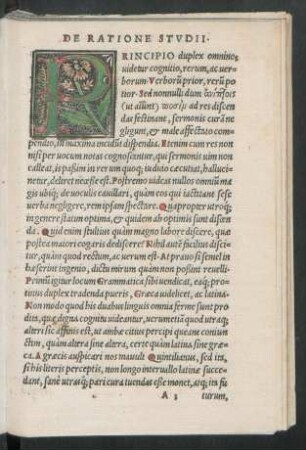 DE RATIONE STVDII.
PRINCIPIO duplex omnino
uidetur cognitio, rerum, ac uer
borum. Verborũ prior, rerũ po
tior. Sed nonnulli dum
(ut aiunt) ad res discen
das festinant, sermonis curã ne
gligunt, & male affectato com
pendio, in maxima incidũt dispendia. Etenim cum res non
nisi per uocum notas cognoscantur, qui sermonis uim non
calleat, is passim in rerum quoq; iudicio cæcutiat, halluci⸗
netur, deliret necesse est. Postremo uideas nullos omniũ ma
gis ubiq; de uoculis cauillari, quàm eos qui iactitant sese
uerba neglegere, rem ipsam spectare. Quapropter utroq;
in genere statim optima, & quidem ab optimis sunt discen
da. Quid enim stultius quàm magno labore discere, quæ
postea maiori cogaris dediscere? Nihil autẽ facilius disci⸗
tur, quàm quod rectum, ac uerum est. At praua si semel in
hæserint ingenio, dictu mirum quàm non possint reuelli.
Primũ igitur locum Grammatica sibi uendicat, eaq; pro⸗
tinus duplex tradenda pueris, Græca uidelicet, ac latina.
Non modo quod his duabus linguis omnia ferme sunt pro
dita, quæ digna cognitu uideantur, uerumetiã quod utraq;
alteri sic affinis est, ut ambæ citius percipi queant coniun
ctim, quàm altera sine altera, certe quàm latina sine græ⸗
ca. A græcis auspicari nos mauult Quintilianus, sed ita,
si his literis perceptis, non longo interuallo latinæ succe⸗
dant, sanè utrasq; pari cura tuendas esse monet, atq; in fu
A 3 turum,